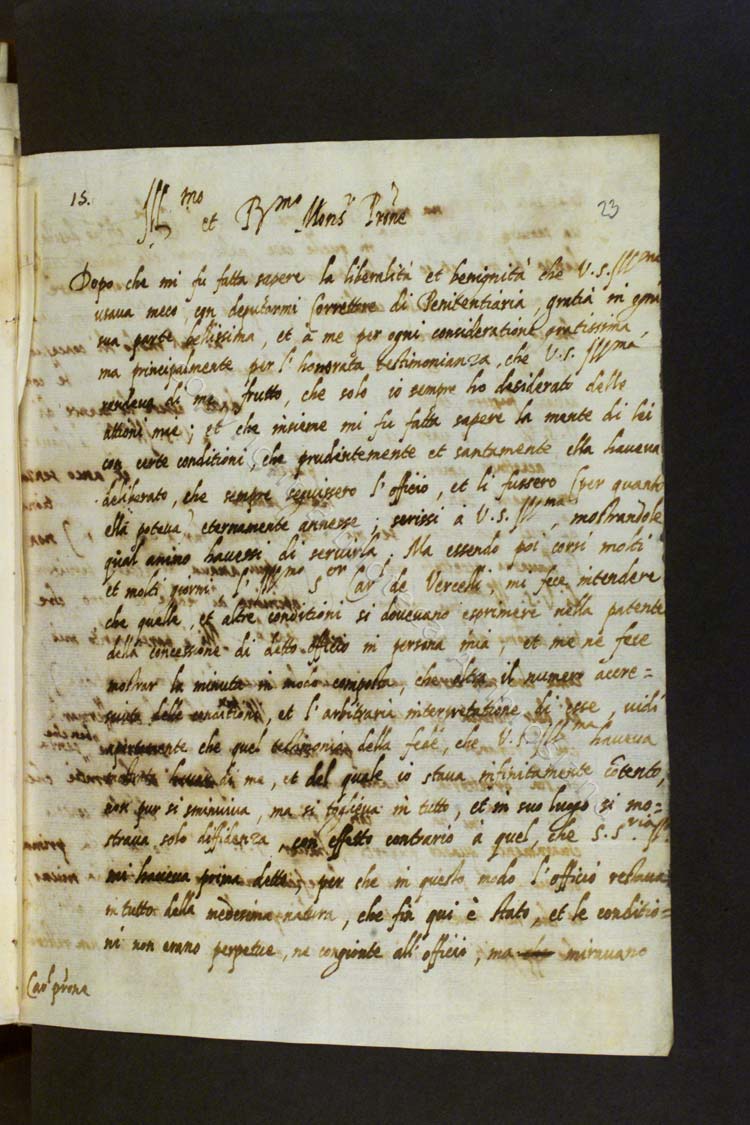 15.
Ill.mo et R.mo Mons.r P̃rone
23
Dopo che mi fu fatta sapere la liberalità et benignità che V.S. Ill.ma
usava meco, con deputarmi Correttore di Penitentiaria, gratia in ogni
sua parte bellissima, et à me per ogni consideratione gratissima,
ma principalmente per l'honorata testimonianza, che V.S. Ill.ma
rendeva di me, frutto, che solo io sempre ho desiderato delle
attioni mie; et che insieme mi fu fatta sapere la mente di lei
con certe conditioni, che prudentemente et santamente ella haveva
deliberato, che sempre seguissero l'officio, et li fussero (per quanto
ella poteva) eternamente annesse; scrissi à V.S. Ill.ma, mostrandole
qual animo havessi di servirla. Ma essendo poi corsi molti
et molti giorni l'Ill.mo S.or Car.l de Vercelli, mi fece intendere
che quelle, et altre conditioni si dovevano esprimere nella patente
della concessione di detto officio in persona mia, et me ne fece
mostrar la minuta in modo composta, che oltra il numero accre=
sciuto delle conditioni, et l'arbitraria interpretatione di esse, vidi
apertamente che quel testimonio della fede, che V.S. Ill.ma haveva
di me, et del quale io stava infinitamente cõtento,
non pur si sminuiva, ma si toglieva in tutto, et in suo luogo si mo=
strava solo diffidenza, con effetto contrario à quel, che S.S.ria Ill.
mi haveva prima detto, per che in questo modo l'officio restava
in tutto della medesima natura, che fin qui è stato, et le conditio=
ni non erano perpetue, ne congionte all'officio, ma miravano
Car.l p̃rone